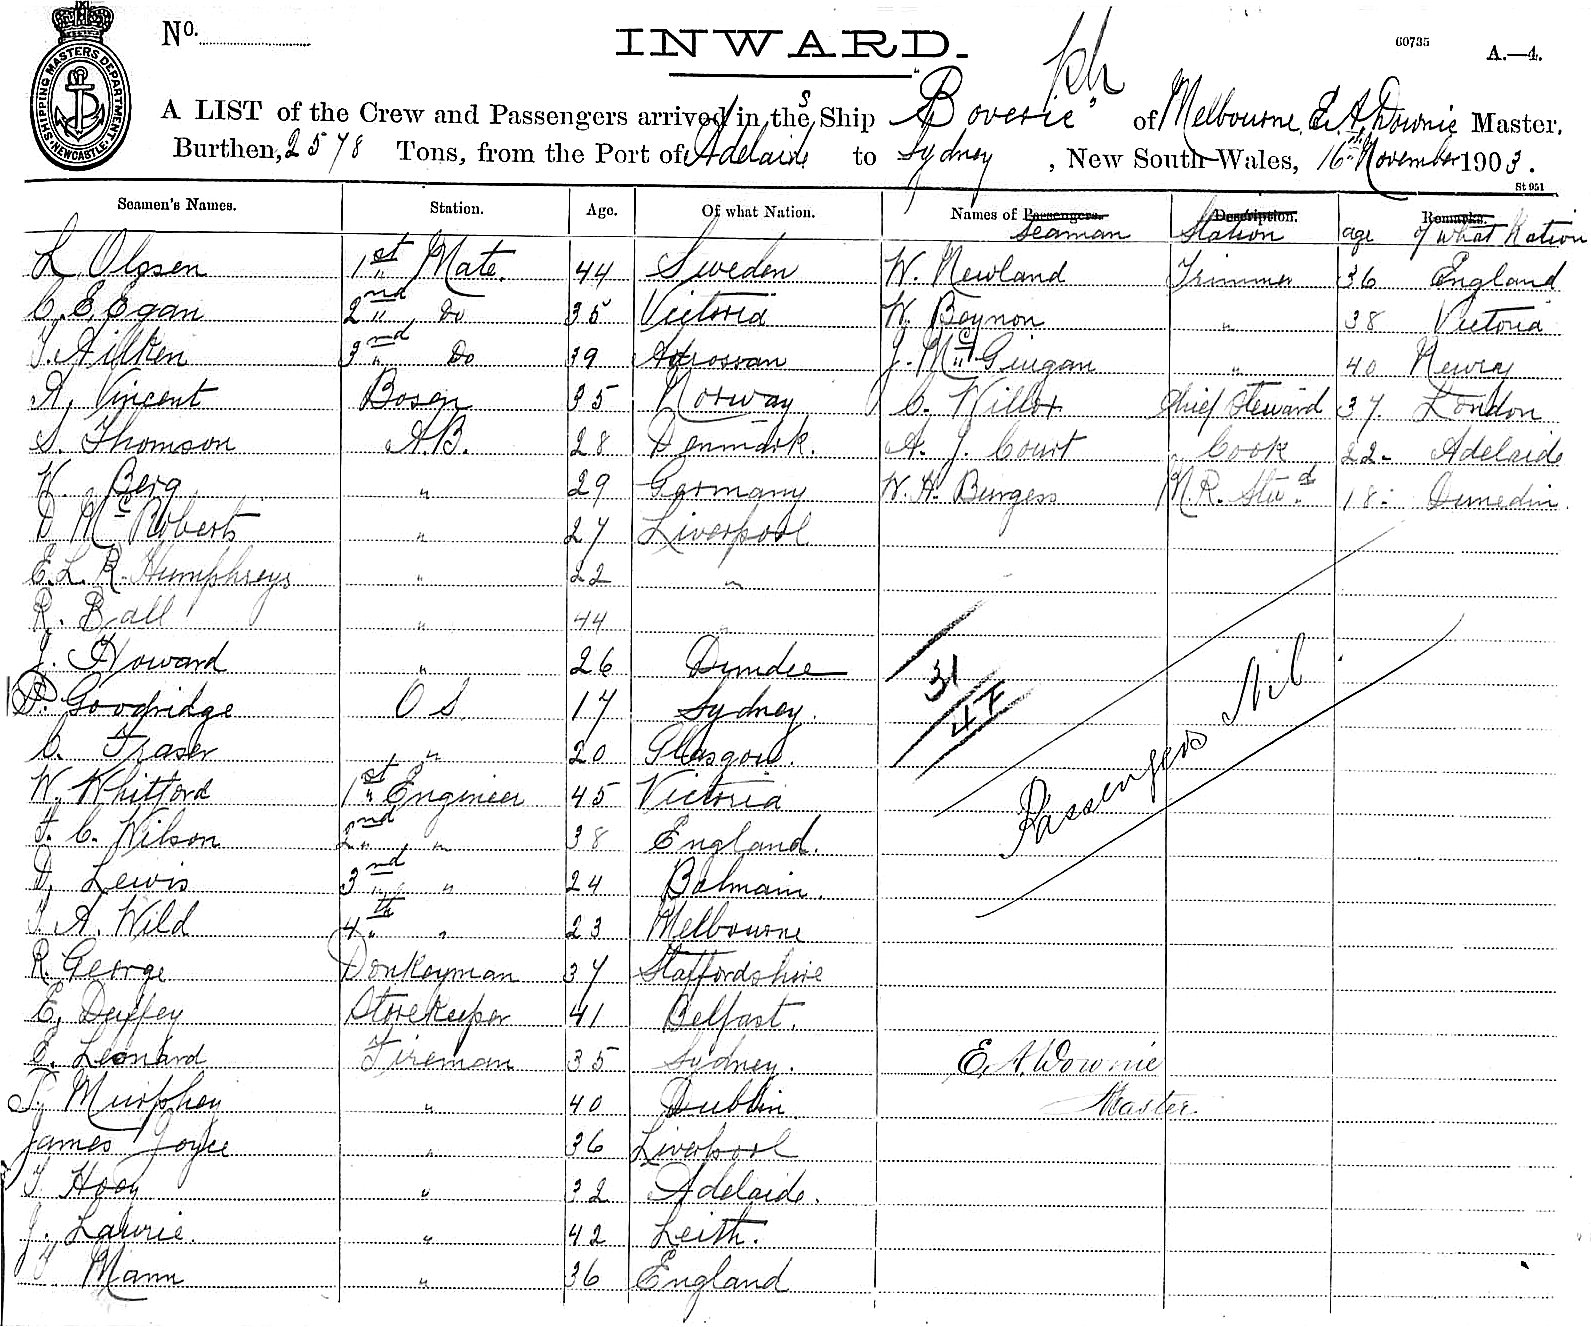 SHIPPING MASTERS DEPARTMENT
NEWCASTLE
No.
INWARD.
60735
A.—4.
A LIST of the Crew and Passengers arrived in the S Ship "Boveric" of Melbourne, E. A. Downie Master,
Burthen, 2578 Tons, from the Port of Adelaide to Sydney, New South Wales, 16th November 1903.
St 951
Seamen's Names. Station. Age. Of what Nation. Names of Passengers. Seaman Description. Station age Remarks. of what Nation
L Olssen 1st Mate. 44 Sweden W. Newland Trimmer 36 England
C. E. Egan 2nd " Do 35 Victoria W. Boynon " 38 Victoria
T. Aitken 3rd " Do 39 J. Mc Guigan " 40 Newry
A, Vincent Bosen 35 Norway C. Willox Chief Steward 37 London
S. Thomson A.B. 28 Denmark. A. J. Court Cook 22 - Adelaide
W. Berg " 29 Germany W. H. Burgess M. R. Stwd 18 - Dunedin
D Mc Roberts " 27 Liverpool
E. L. R. Humphreys " 22 "
R. Ball " 44
J. Howard " 26 Dundee
P. Goodridge O S. 17 Sydney.
C. Fraser " 20 Glasgow.
W. Whitford 1st " Engineer 45 Victoria
F. C. Wilson 2nd " " 38 England.
D, Lewis 3nd " " 24 Balmain.
T. A. Wild 4th " " 23 Melbourne
R. George Donkeyman 37 Staffordshire
E, Duffey Storekeeper 41 Belfast.
E. Leonard Fireman 35 Sydney.
P. Murphey " 40 Dublin.
James Joyce " 36 Liverpool
T Hoey " 32 Adelaide.
J. Lawrie. " 42 Leith.
Mann " 36 England
31
47
Passengers Nil.
E. A. Downie
Master.